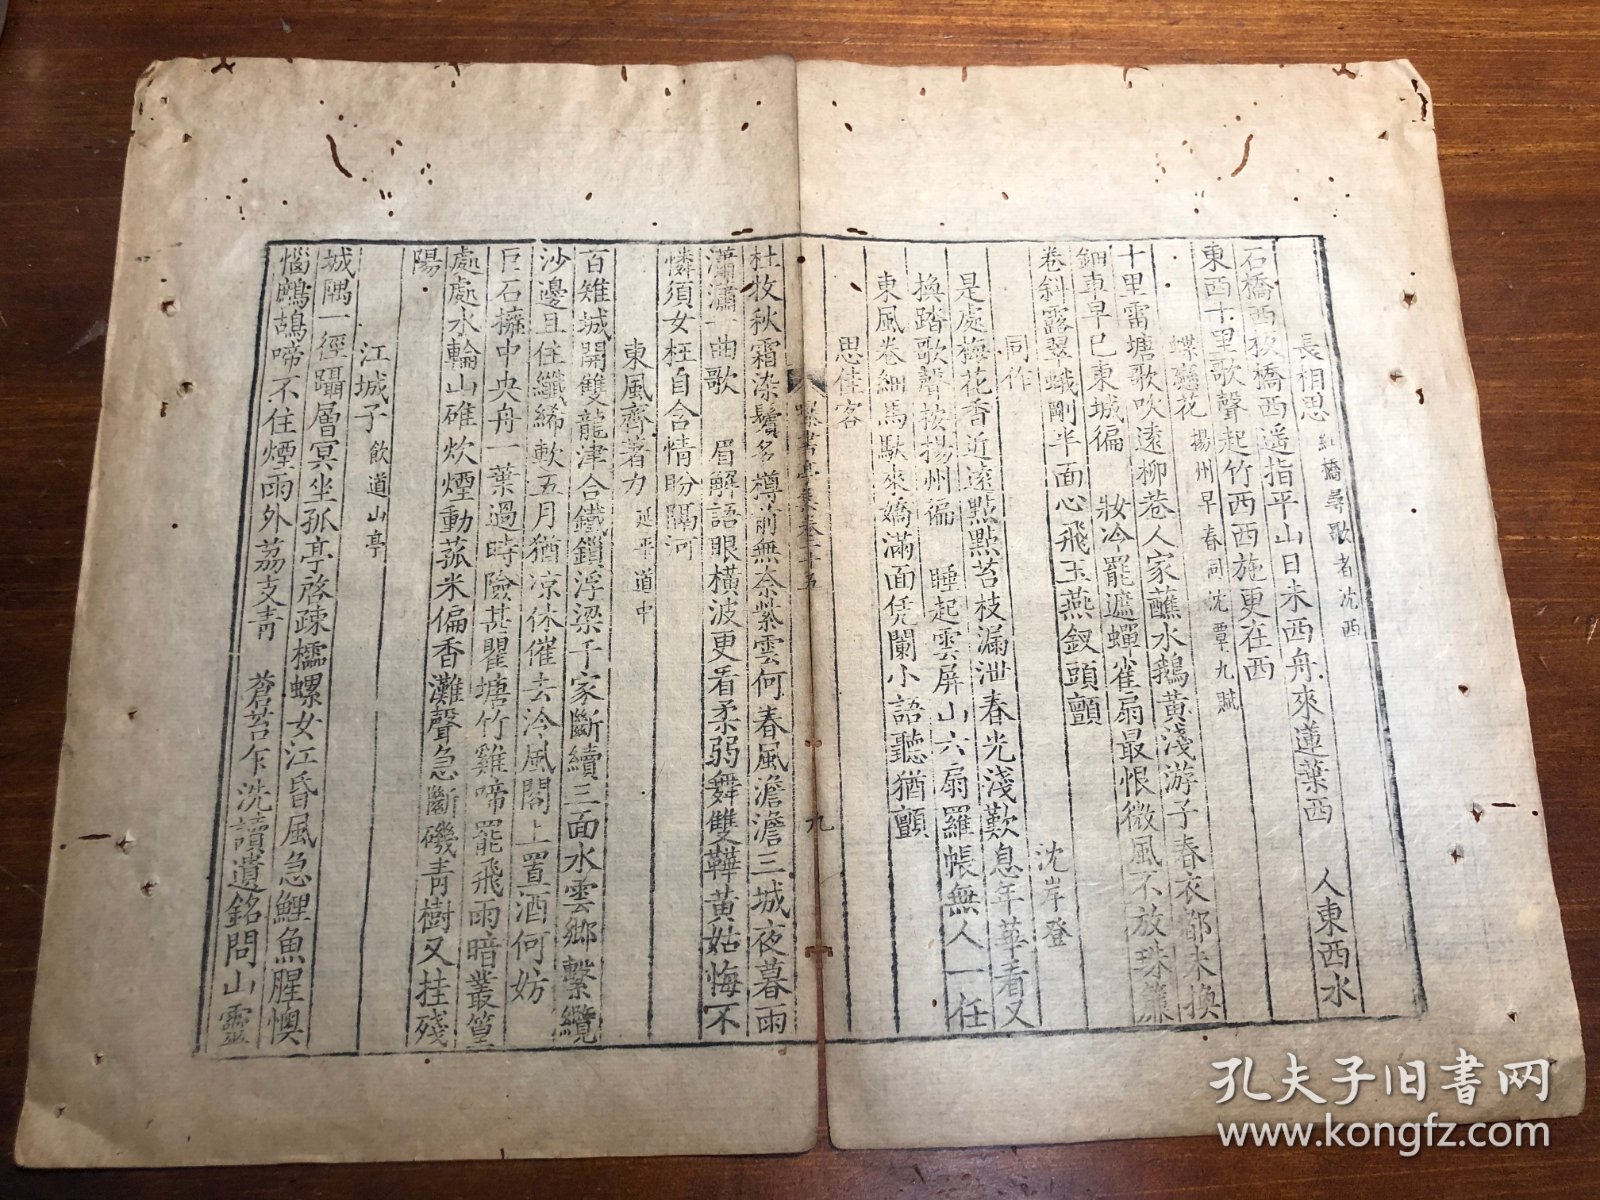 長相思 紅橋尋歌者沈西
石橋西板橋西遥指平山日未西舟來蓮葉西　人東西水
東西十里歌聲起竹西西施更在西
蝶戀花 揚州早春同沈覃九賦
十里雷塘歌吹遠柳巷人家蘸水鵝黃淺游子春衣都未換
鈿車早已東城徧　妝冷罷遮蟬雀扇最恨微風不放珠簾
卷斜露翠蛾剛半面心飛玉燕釵頭顫
同作　沈岸登
是處梅花香近遠點點苔枝漏泄春光淺歎息年華看又
換踏歌聲按揚州徧　睡起雲屏山六扇羅帳無人一任
東風卷細馬馱來嬌滿面凭闌小語聽猶顫
思佳客
曝書亭集卷二十五　九
杜牧秋霜染鬢多樽前無奈紫雲何春風澹澹三城夜暮雨
瀟瀟一曲歌　眉解語眼橫波更看柔弱舞雙鞾黃姑悔不
憐須女枉自含情盼隔河
東風齊著力 延平道中
百雉城開雙龍津合鐵鎖浮梁千家斷續三面水雲鄉繫纜
沙邊且住纖絺軟五月猶凉休催去泠風閣上置酒何妨
巨石擁中央舟一葉過時險甚瞿塘竹雞啼罷飛雨暗叢篁
處處水輪山碓炊煙動菰米偏香灘聲急斷磯青樹又挂殘
陽
江城子 飲道山亭
城隅一徑躡層冥坐孤亭啓疎櫺螺女江昏風急鯉魚腥懊
惱鷓鴣啼不住煙雨外荔支青　蒼苔乍洗讀遺銘問山靈
孔夫子旧书网
www.kongfz.com